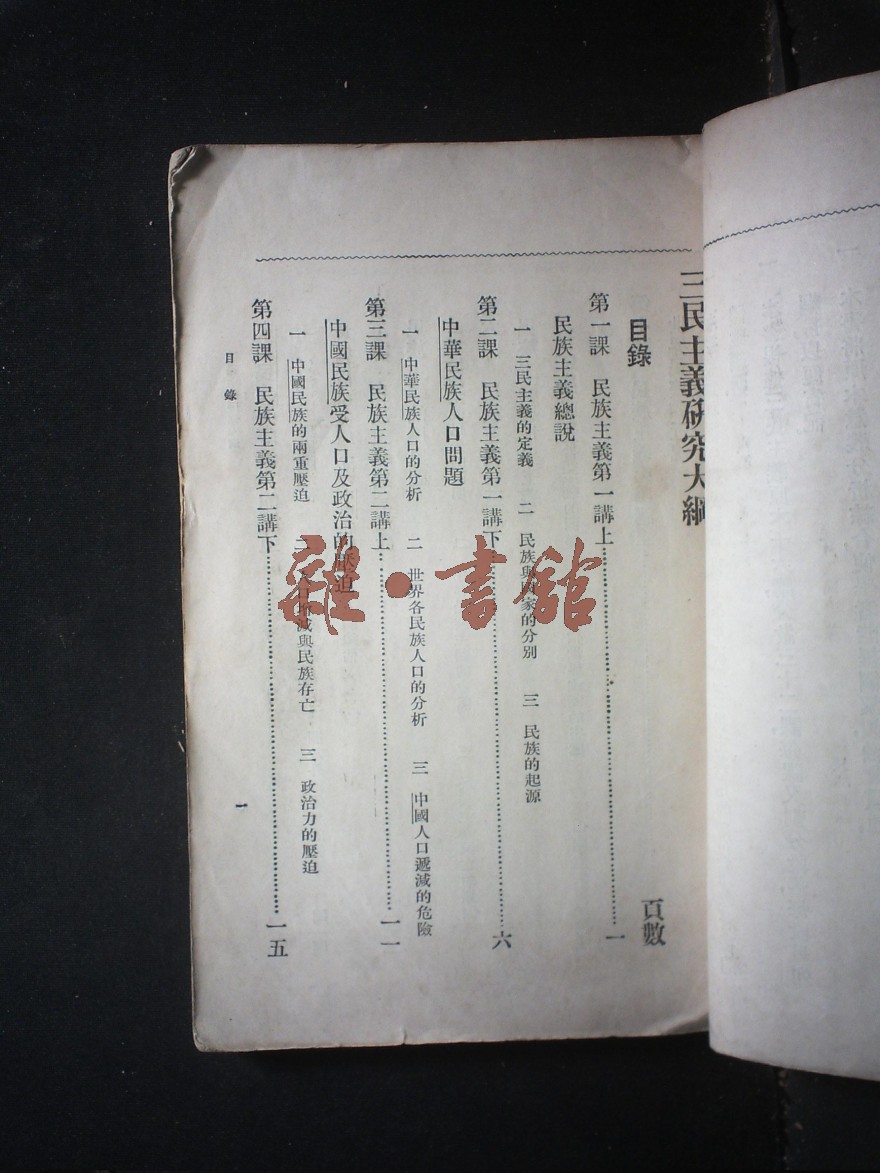 三民主義研究大綱
目錄 頁數
第一課 民族主義第一講上 一
民族主義總說
一 三民主義的定義 二 民族與國家的分別 三 民族的起源
第二課 民族主義第一講下 六
中華民族人口問題
一 中華民族人口的分析 二 世界各民族人口的分析 三 中國人口遞減的危險
第三課 民族主義第二講上 一一
中國民族受人口及政治的壓迫
一 中國民族的兩重壓迫 二 人口增減與民族存亡 三 政治力的壓迫
第四課 民族主義第二講下 一五
目錄 一
雜·書館